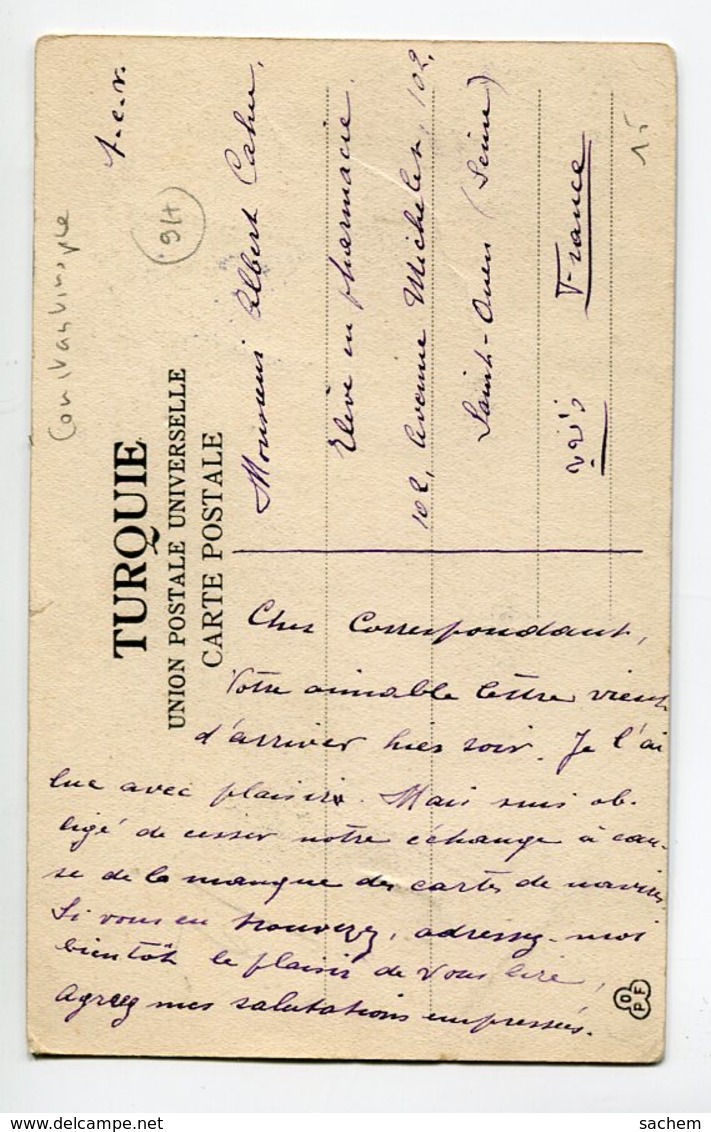 Constantinople
t.c.v.
9H
TURQUIE
UNION POSTALE UNIVERSELLE
CARTE POSTALE
Monsieur Albert Cahu,
Elève en pharmacie.
102, Avenue Michelet, 102,
Saint-Ouen (Seine)
France
15
Cher Correspondant,
Votre aimable lettre vient
d'arriver hier soir. Je l'ai
lue avec plaisir. Mais suis ob-
ligé de cesser notre échange à cau-
se de la manque des cartes de navires.
Si vous en trouvez, adressez-moi
bientôt le plaisir de vous lire,
Agréez mes salutations empressées.
OPF
sachem
Delcampe.net